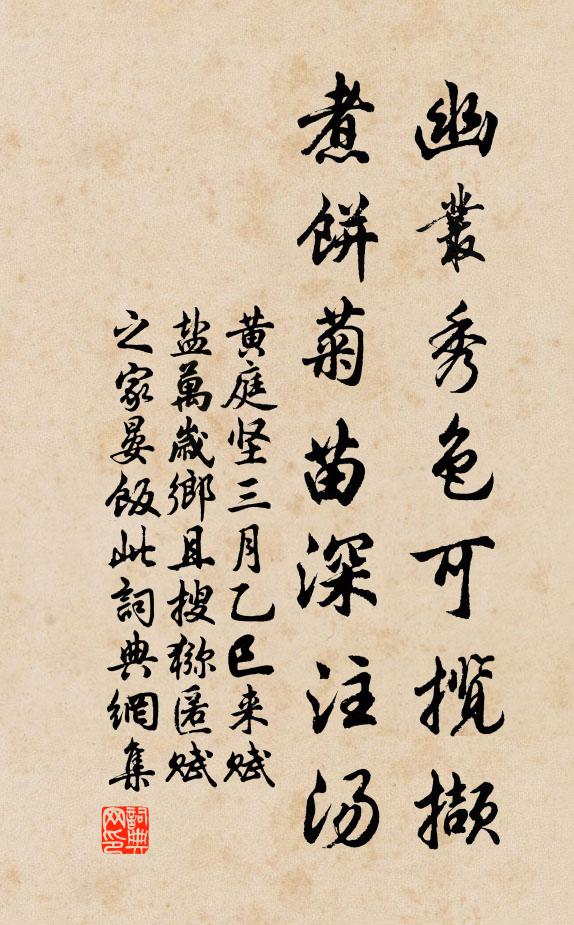 幽叢秀色可揽擷
煮餅菊苗深注汤
黄庭坚三月乙巳来赋
盐萬歲鄉且搜猕匿赋
之家晏饭此詞典網集
詞典网印